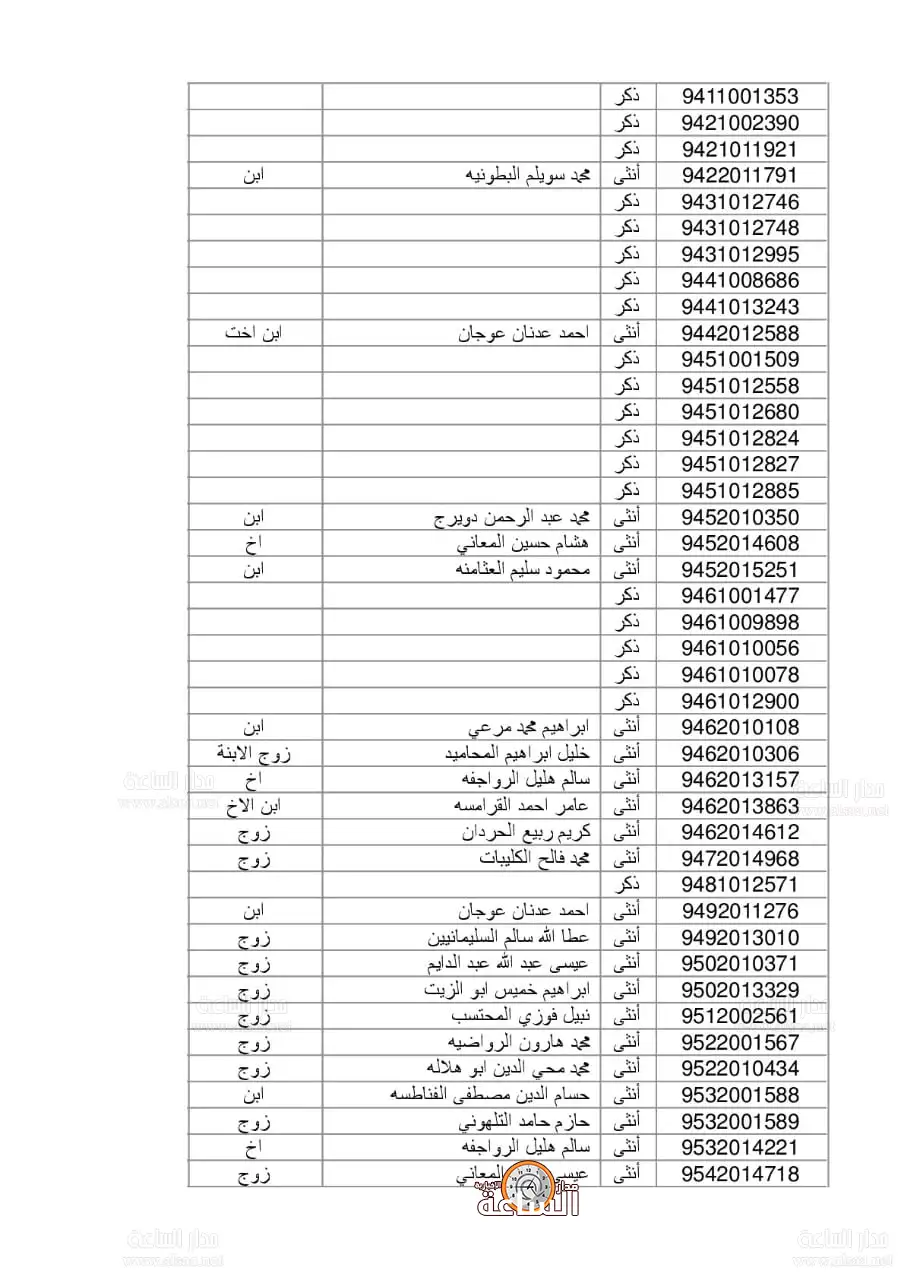 9411001353 ذكر
9421002390 ذكر
9421011921 ذكر
9422011791 أنثى محمد سويلم البطونيه ابن
9431012746 ذكر
9431012748 ذكر
9431012995 ذكر
9441008686 ذكر
9441013243 ذكر
9442012588 أنثى احمد عدنان عوجان ابن اخت
9451001509 ذكر
9451012558 ذكر
9451012680 ذكر
9451012824 ذكر
9451012827 ذكر
9451012885 ذكر
9452010350 أنثى محمد عبد الرحمن دويرج ابن
9452014608 أنثى هشام حسين المعاني اخ
9452015251 أنثى محمود سليم العثامنه ابن
9461001477 ذكر
9461009898 ذكر
9461010056 ذكر
9461010078 ذكر
9461012900 ذكر
9462010108 أنثى ابراهيم محمد مرعي ابن
9462010306 أنثى خليل ابراهيم المحاميد زوج الابنة
9462013157 أنثى سالم هليل الرواجفه اخ
9462013863 أنثى عامر احمد القرامسه ابن الاخ
9462014612 أنثى كريم ربيع الحردان زوج
9472014968 أنثى محمد فالح الكليبات زوج
9481012571 ذكر
9492011276 أنثى احمد عدنان عوجان ابن
9492013010 أنثى عطا الله سالم السليمانيين زوج
9502010371 أنثى عيسى عبد الله عبد الدايم زوج
9502013329 أنثى ابراهيم خميس ابو الزيت زوج
9512002561 أنثى نبيل فوزي المحتسب زوج
9522001567 أنثى محمد هارون الرواضيه زوج
9522010434 أنثى محمد محي الدين ابو هلاله زوج
9532001588 أنثى حسام الدين مصطفى الفناطسه ابن
9532001589 أنثى حازم حامد التلهوني زوج
9532014221 أنثى سالم هليل الرواجفه اخ
9542014718 أنثى عيسى المعاني زوج
مدار الساعة الإخبارية
مدار الساعة
www.alsaa.net
مدار الساعة
www.alsaa.net
مدار الساعة
www.alsaa.net
مدار الساعة
www.alsaa.net
مدار الساعة
www.alsaa.net
مدار الساعة
www.alsaa.net